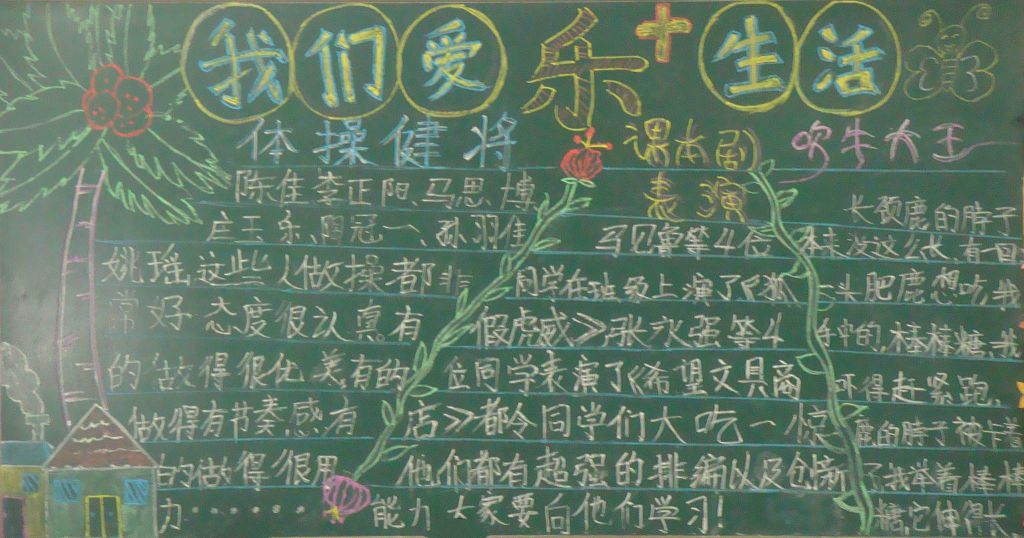 我们爱乐+生活
体操健将
陈佳李正阳、马思博、
庄王乐、周冠一、孙羽佳
姚瑶，这些人做操都非
常好态度很认真有
的做得很优美有的
做得有节奏感有
的做得很用
力······
课本剧
表演
马见鲁等4位
同学在班级上演了《狐
假虎威》张永强等4
位同学表演了《希望文具商
店》都令同学们大吃一惊
他们都有超强的排编以及创新
能力大家要向他们学习！
吹牛大王
长颈鹿的脖子
本来没这么长，有一回
一头肥鹿想吃我
手中的，棒棒糖，我
吓得赶紧跑，
鹿的脖子被卡着
了我举着棒棒
糖，它伸得长